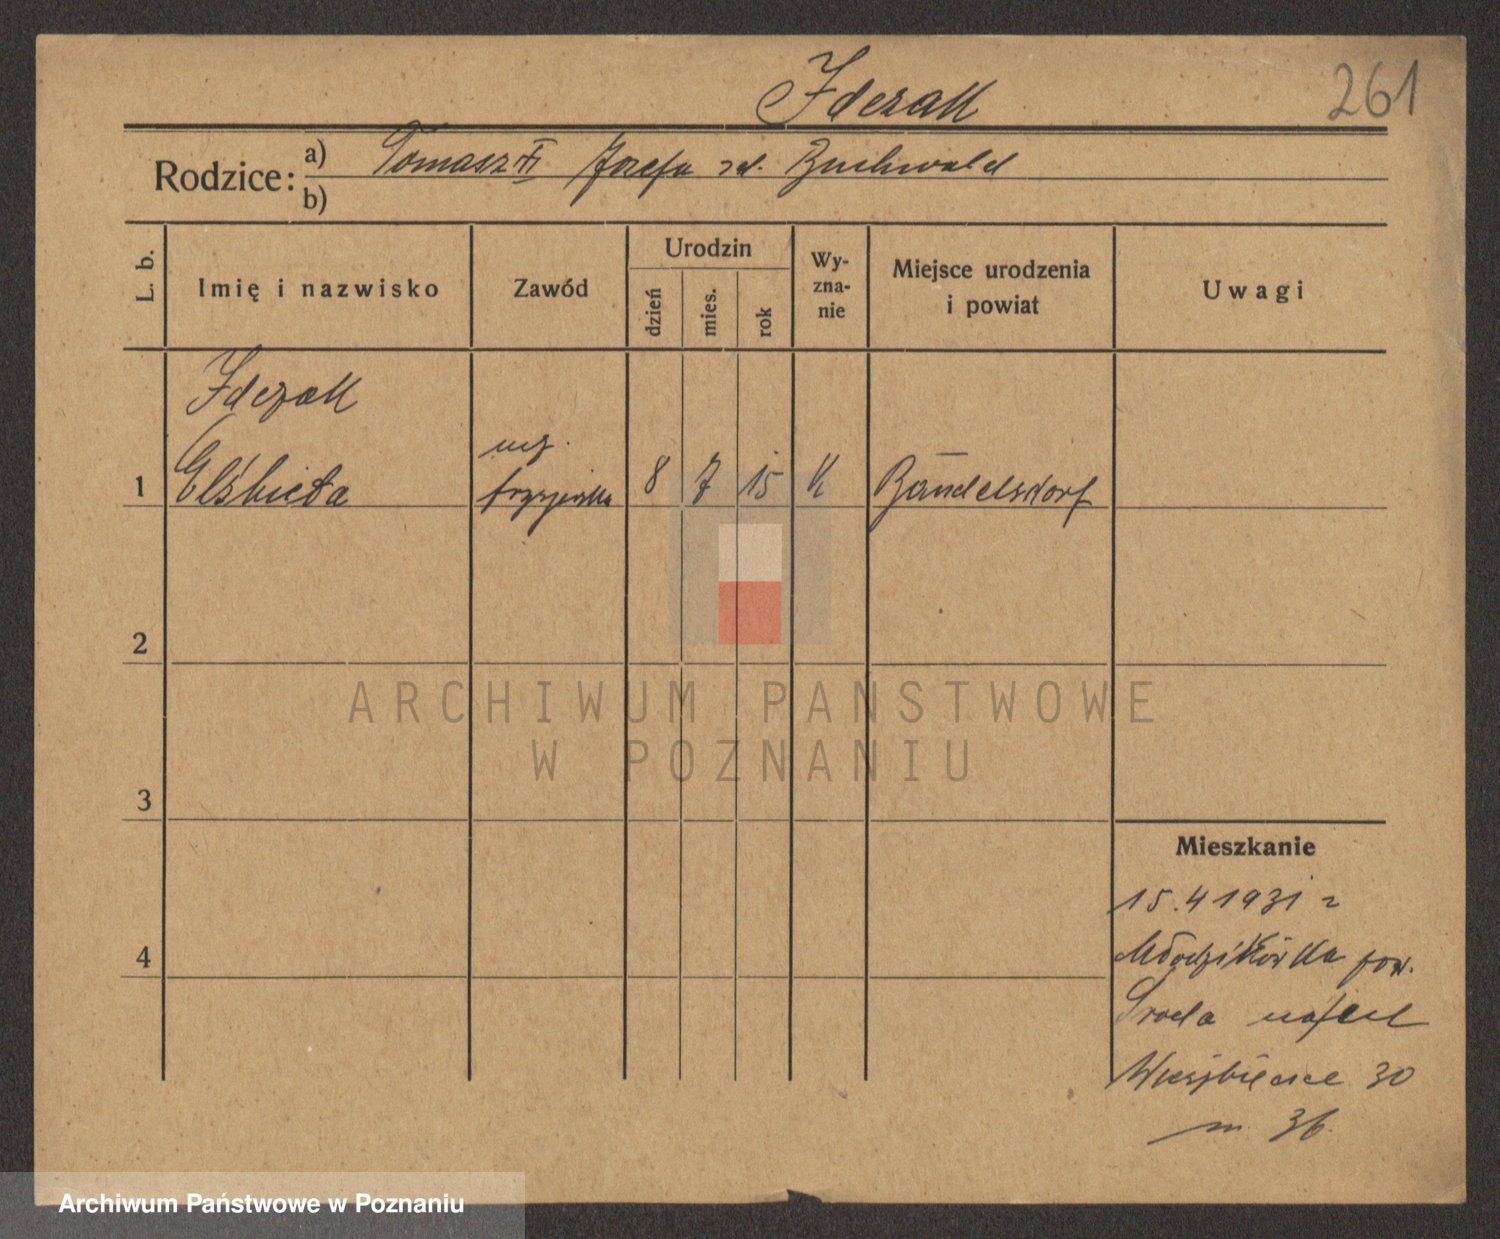 Idczak
261
Rodzice: a) Tomasz Józefa zd. Buchwald
b)
L. b.
Imię i nazwisko
Zawód
Urodzin
dzień
mies.
rok
Wy-
zna-
nie
Miejsce urodzenia
i powiat
Uwagi
Idczak
ucz.
1 Elżbieta fryzjerska 8 7 15 K Bändelsdorf
2
ARCHIWUM PAŃSTWOWE
W POZNANIU
3
Mieszkanie
15.4 1931 r
4
Młodzikówka pow.
Środa
Wierzbięcice 30
m. 36.
Archiwum Państwowe w Poznaniu